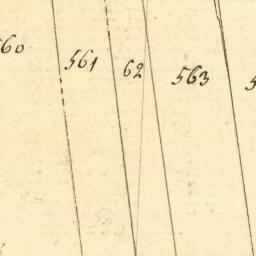 560
561
62
563
5